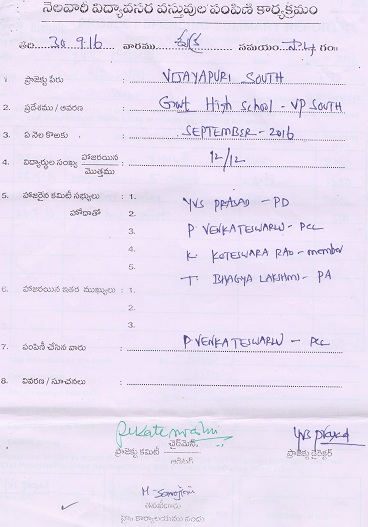 నెలవారీ విద్యావసర వస్తువుల పంపిణీ కార్యక్రమం
తేది 30.9.16 వారము శుక్ర సమయం సా.4 గం॥
1. ప్రాజెక్టు పేరు : VIJAYAPURI SOUTH
2. ప్రదేశము / ఆవరణ : Govt High School - VP SOUTH
3. ఏ నెల కొఱకు : SEPTEMBER - 2016
4. విద్యార్థుల సంఖ్య హాజరయిన / మొత్తము : 12/12
5. హాజరైన కమిటీ సభ్యులు : 1. YVS PRASAD - PD
హోదాతో 2.
3. P VENKATESWARLU - PCC
4. K KOTESWARA RAO - member
5. T BHAGYA LAKSHMI - PA
6. హాజరయిన ఇతర ముఖ్యులు : 1.
2.
3.
7. పంపిణీ చేసిన వారు : P VENKATESWARLU - PCC
8. వివరణ / సూచనలు :
YVS Prasad
ప్రాజెక్టు కమిటీ చైర్మెన్ ప్రాజెక్టు డైరెక్టర్
M. Sarojini